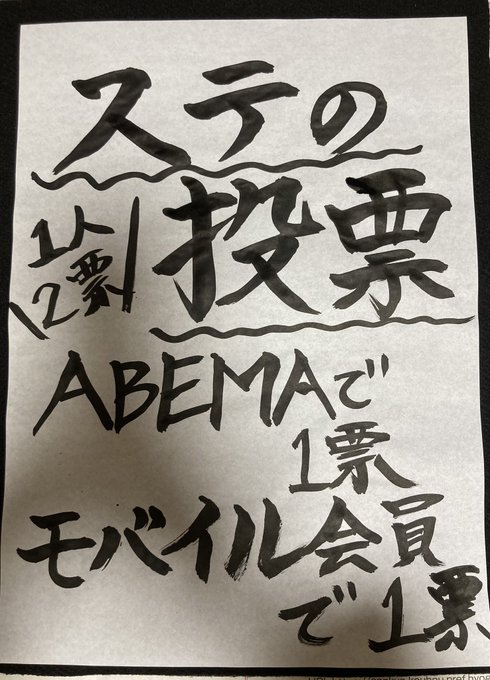 ステの
投票
1人
2票
ABEMAで
1票
モバイル会員
で1票